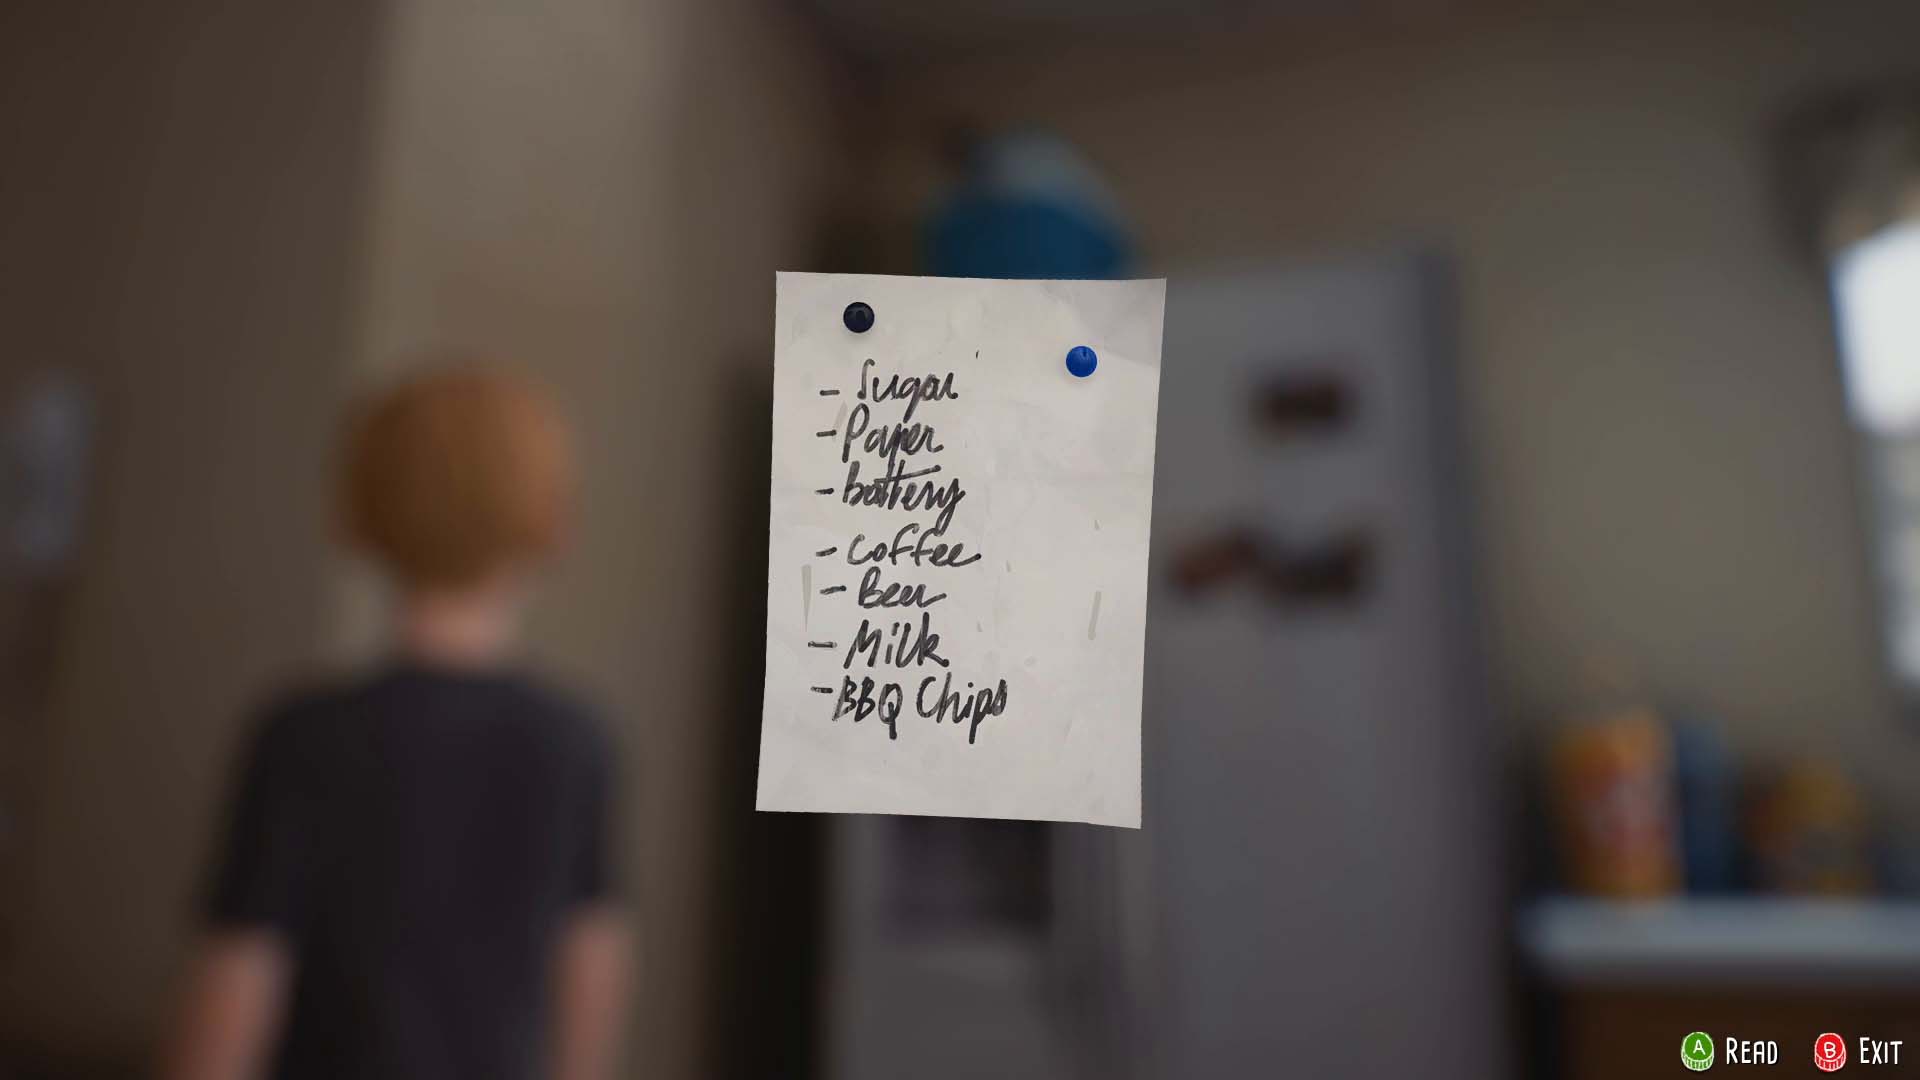 - Sugar
- Paper
- battery
- Coffee
- Beer
- Milk
- BBQ Chips
A READ B EXIT